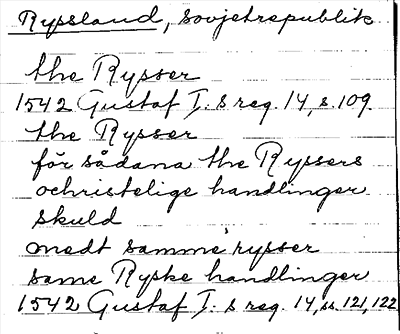 Ryssland, Sovjetrepublik
the Rysser
1542 Gustaf I:s reg. 14, s. 109.
the Rysser
för sådana the Ryssers
ochristelige handlinger
skuld
medt samme rysser
same Ryske handlinger
1542 Gustaf I:s reg. 14, ss. 121, 122